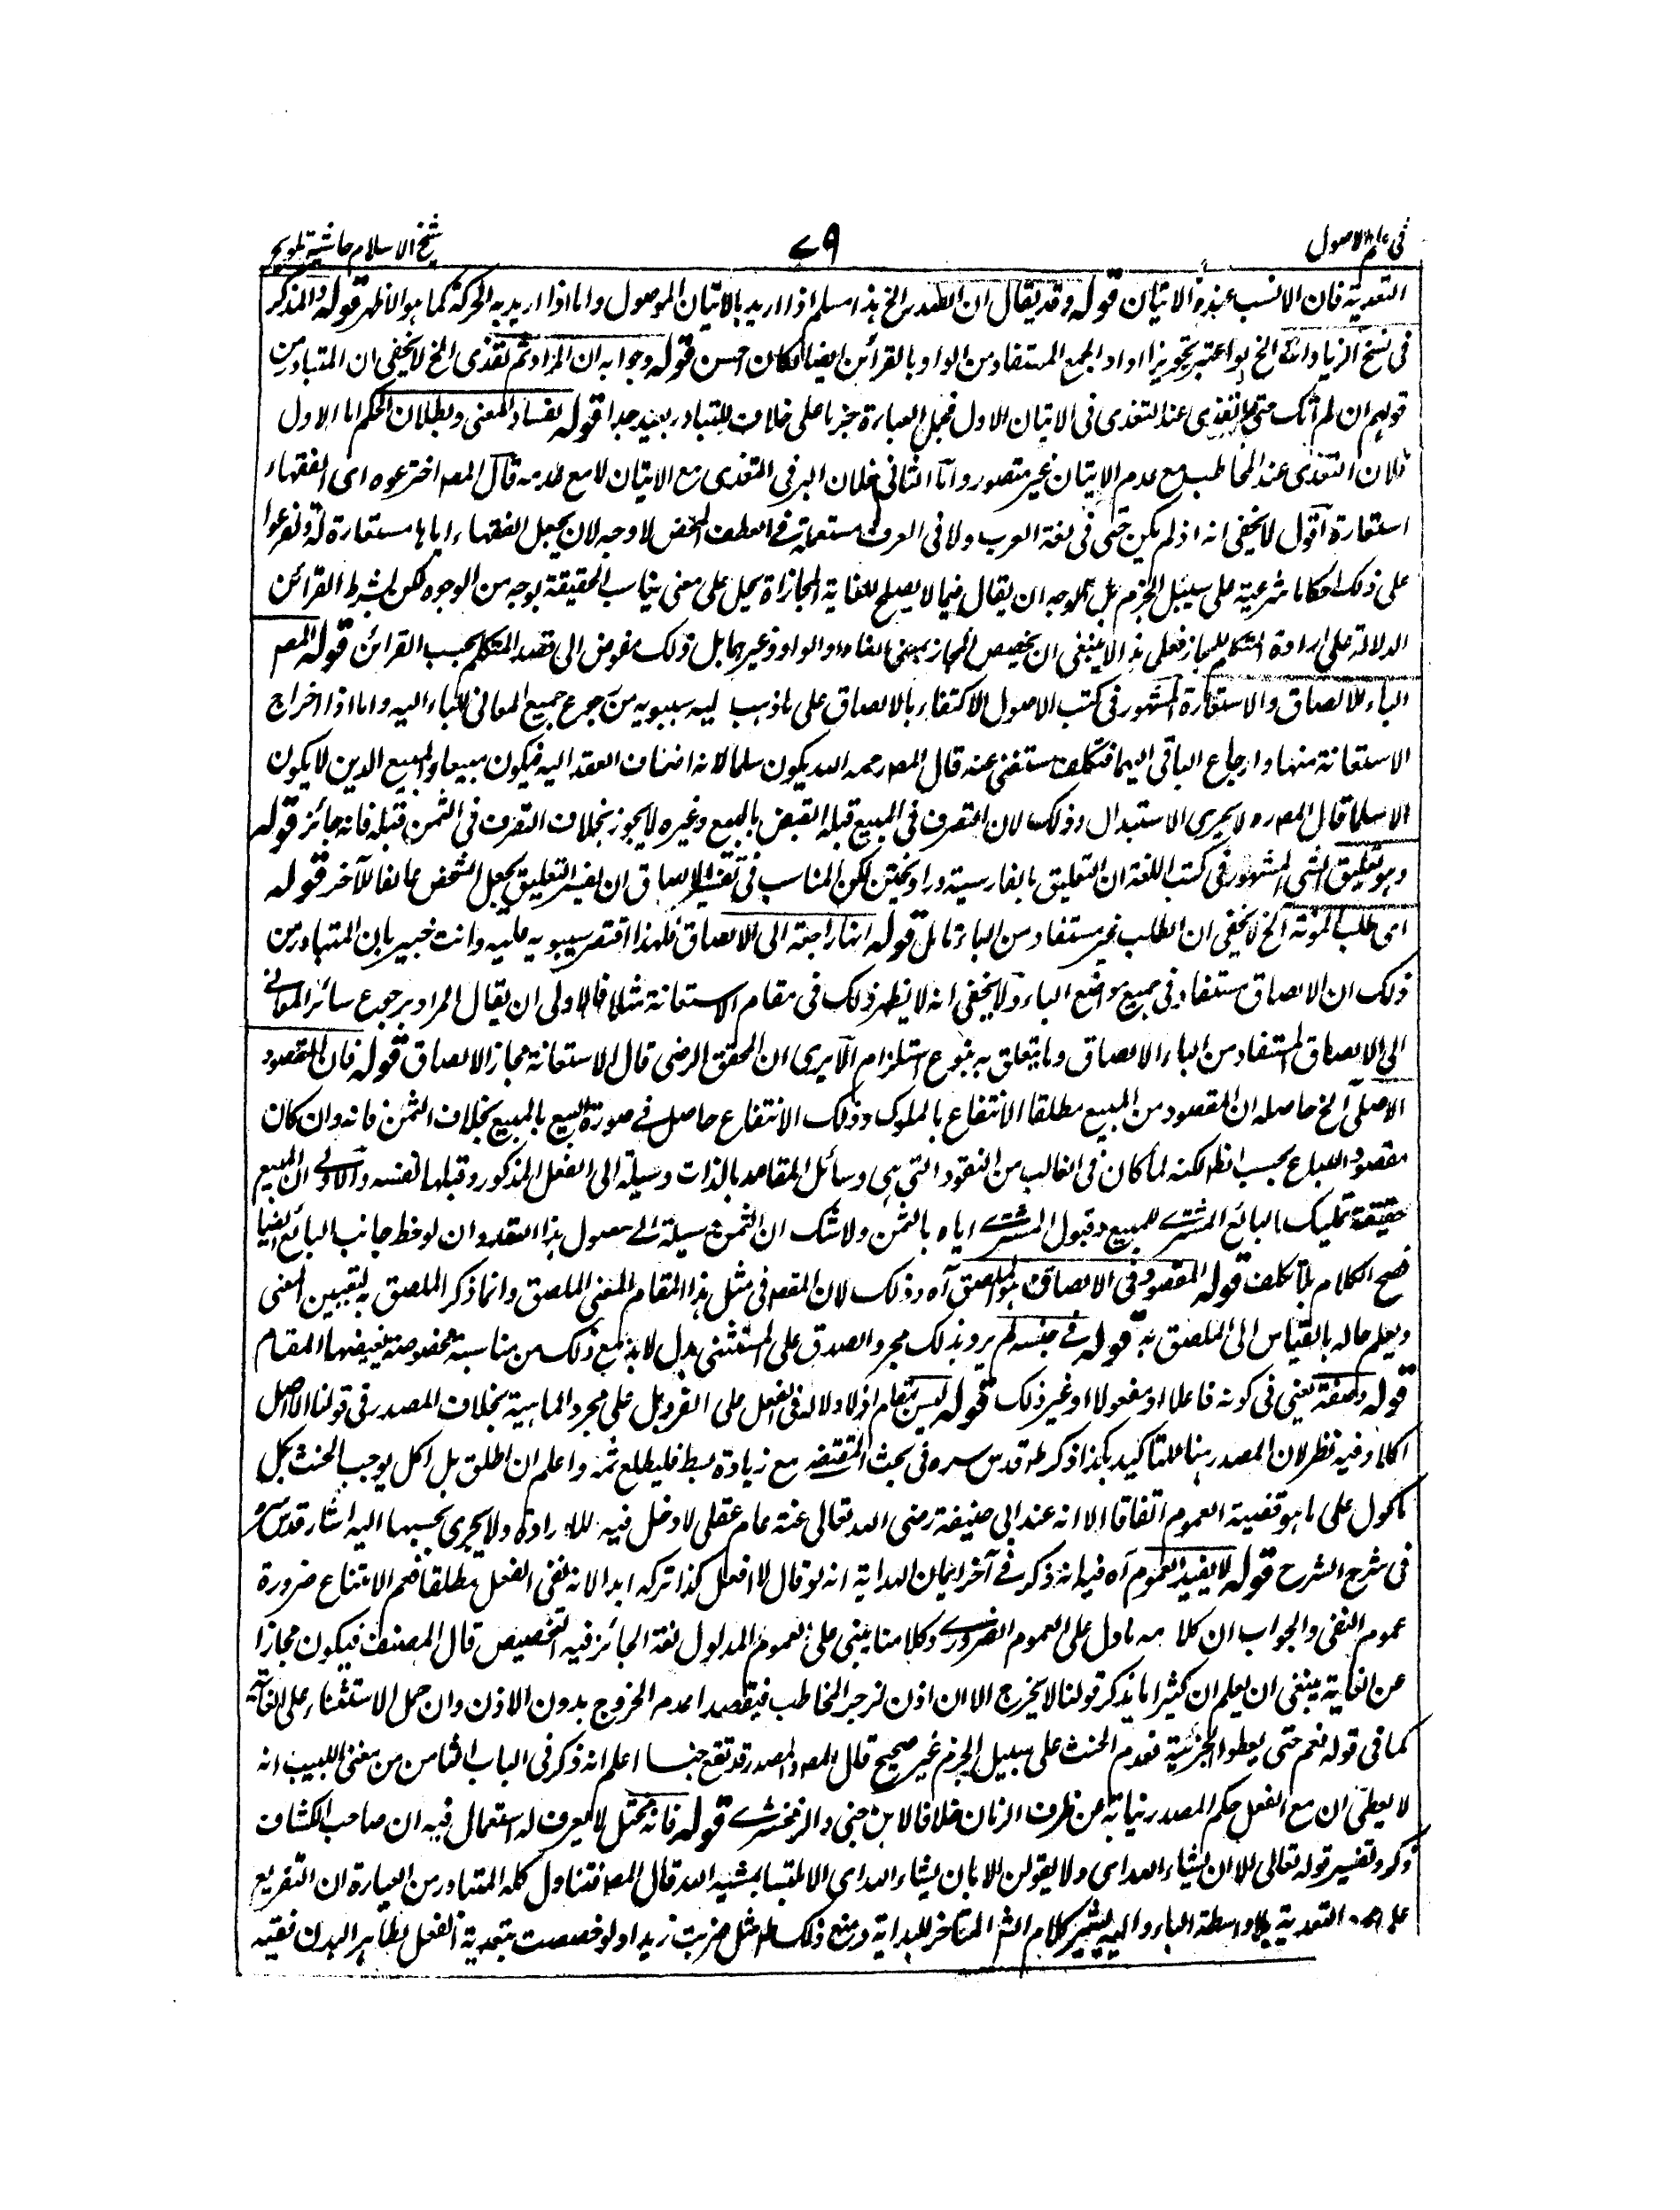 في علم الاصول
٧٩
شيخ الاسلام حاشية تلويح
التعدية فان الانسب عنده الاتيان قوله وقد يقال ان الصدر الخ هذا مسلم اذا اريد بالاتيان الموصول واما اذا اريد به الحركة كما هو الاظهر قوله والمذكر
في نسخ الزيادات الخ لو اعتبر تجويز اواد الجمع المستفاد من الواو بالقرائن ايضا لكان احسن قوله وجوابه ان المراد ثم تغذى الخ لا يخفى ان المتبادر من
قولهم ان لم آتك حتى اتغدى عند التغدى في الاتيان الاول فجعل العبارة خبرا على خلاف المتبادر بعيد جدا قوله لفساد المعنى وبطلان الحكم اما الاول
فلان التغدى عند المخاطب مع عدم الاتيان غير متصور واما الثاني فلان البر في التغدى مع الاتيان لا مع عدمه قال المصـ اخترعوه اى الفقهاء
استعارة اقول لا يخفى انه اذ لم يكن حتى في لغة العرب ولا في العرف مستعملة في العطف المحض لا وجه لان يجعل الفقهاء اياها مستعارة له وفرعوا
على ذلك احكاما شرعية على سبيل الجزم بل الوجه ان يقال فيما لا يصلح للغاية المجازاة يحمل على معنى يناسب الحقيقة بوجه من الوجوه لكن بشرط القرائن
الدلالة على ارادة المتكلم للمجاز فعلى هذا لا ينبغى ان يخصص المجاز بمعنى الفاء او الواو وغيرهما بل ذلك مفوض الى قصد المتكلم بحسب القرائن قوله المصـ
الباء للالصاق والاستعارة المشهور في كتب الاصول الاكتفاء بالالصاق على ما ذهب اليه سيبويه من رجوع جميع المعانى للباء اليه واما اذا اخراج
الاستعانة منها وارجاع الباقى اليهما فتكلف مستغنى عنه قال المصـ رحمه الله يكون سلما لانه اضاف العقد اليه فيكون مبيعا والمبيع الدين لا يكون
الا سلما قال المصـ ره لا يجرى الاستبدال وذلك لان التصرف في المبيع قبله القبض بالبيع وغيره لا يجوز بخلاف التصرف في الثمن قبله فانه جائز قوله
وهو تعليق الشئ المشهور في كتب اللغة ان التعليق بالفارسية در آويختن لكن المناسب في تفسير الالصاق ان يفسر التعليق بجعل الشخص عالقا للآخر قوله
اى طلب المعونة الخ لا يخفى ان الطلب غير مستفاد من الباء تامل قوله انها راجعة الى الالصاق فلهذا اقتصر سيبويه عليه وانت خبير بان المتبادر من
ذلك ان الالصاق مستفاد في جميع مواضع الباء ولا يخفى انه لا يظهر ذلك في مقام الاستعانة مثلا فالاولى ان يقال المراد برجوع سائر المعانى
الى الالصاق المستفاد من الباء الالصاق وما يتعلق به بنوع استلزام الا يرى ان المحقق الرضى قال الاستعانة مجاز الالصاق قوله فان المقصود
الاصلى الخ حاصله ان المقصود من المبيع مطلقا الانتفاع بالمملوك وذلك الانتفاع حاصل في صورة البيع بالمبيع بخلاف الثمن فانه وان كان
مقصود البياع بحسب الظ لكنه لما كان في الغالب من النقود التى هى وسائل المقاصد بالذات وسيلة الى الفعل المذكور وقبلها لنفسه والاولى ان البيع
حقيقة تمليك البائع المشترى للمبيع وقبول المشترى اياه بالثمن ولا شك ان الثمن وسيلة الى حصول هذا العقد وان لوحظ جانب البائع ايضا
فصح الكلام بلا تكلف قوله المقصود في الالصاق هو الملصق آه وذلك لان المقصـ في مثل هذا المقام المعنى الملصق وانما ذكر الملصق به ليتبين المعنى
ويعلم حاله بالقياس الى الملصق به قوله في جنسه لم يرد بذلك مجرد الصدق على المستثنى بل لا بد مع ذلك من مناسبة مخصوصة يقتضيها المقام
قوله وصفة يعنى في كونه فاعلا او مفعولا او غير ذلك قوله ليس بعام اذ لا دلالة في الفعل على الفرد بل على مجرد الماهية بخلاف المصدر في قولنا لا آكل
اكلا وفيه نظر لان المصدر هنا للتاكيد هكذا ذكره قدس سره في بحث المقتضى مع زيادة بسط فليطلع ثمه واعلم ان اطلق بل اكل يوجب الحنث بكل
ماكول على ما هو قضية العموم اتفاقا الا انه عند ابى حنيفة رضى الله تعالى عنه عام عقلى لا دخل فيه للارادة ولا يجرى بحسبها اليه اشار قدس سره
في شرح الشرح قوله لا يفيد العموم آه فيه انه ذكر في آخر ايمان الهداية انه لو قال لا افعل كذا تركه ابدا لانه نفى الفعل مطلقا فعم الامتناع ضرورة
عموم النفى والجواب ان كلامه ما دل على العموم الضرورى وكلامنا مبنى على العموم المدلول لغة الجائز فيه التخصيص قال المصنف فيكون مجازا
عن الغاية ينبغى ان يعلم ان كثيرا ما يذكر قولنا لا يخرج الا ان اذن لزجر المخاطب فيقصد عدم الخروج بدون الاذن وان حمل الاستثناء على الغاية
كما في قوله نعم حتى يعطوا الجزية فعدم الحنث على سبيل الجزم غير صحيح قال المصـ والمصدر قد تقع حينا اعلم انه ذكر في الباب الثامن من مغنى اللبيب انه
لا يعطى ان مع الفعل حكم المصدر نيابة عن ظرف الزمان خلافا لابن جنى والزمخشرى قوله فانه محتمل لا يعرف له استعمال فيه ان صاحب الكشاف
ذكر وتفسير قوله تعالى الا ان يشاء الله اى ولا يقولن الا بان يشاء الله اى الا ملتبسا بمشية الله قال المصـ فتناول كله المتبادر من العبارة ان التفريع
على التعدية بلا واسطة الباء واليه يشير كلام الشـ المتاخر للهداية ومنع ذلك له مثل ضربت زيدا ولو خصصت بتعدية الفعل بظاهر البدن ففيه